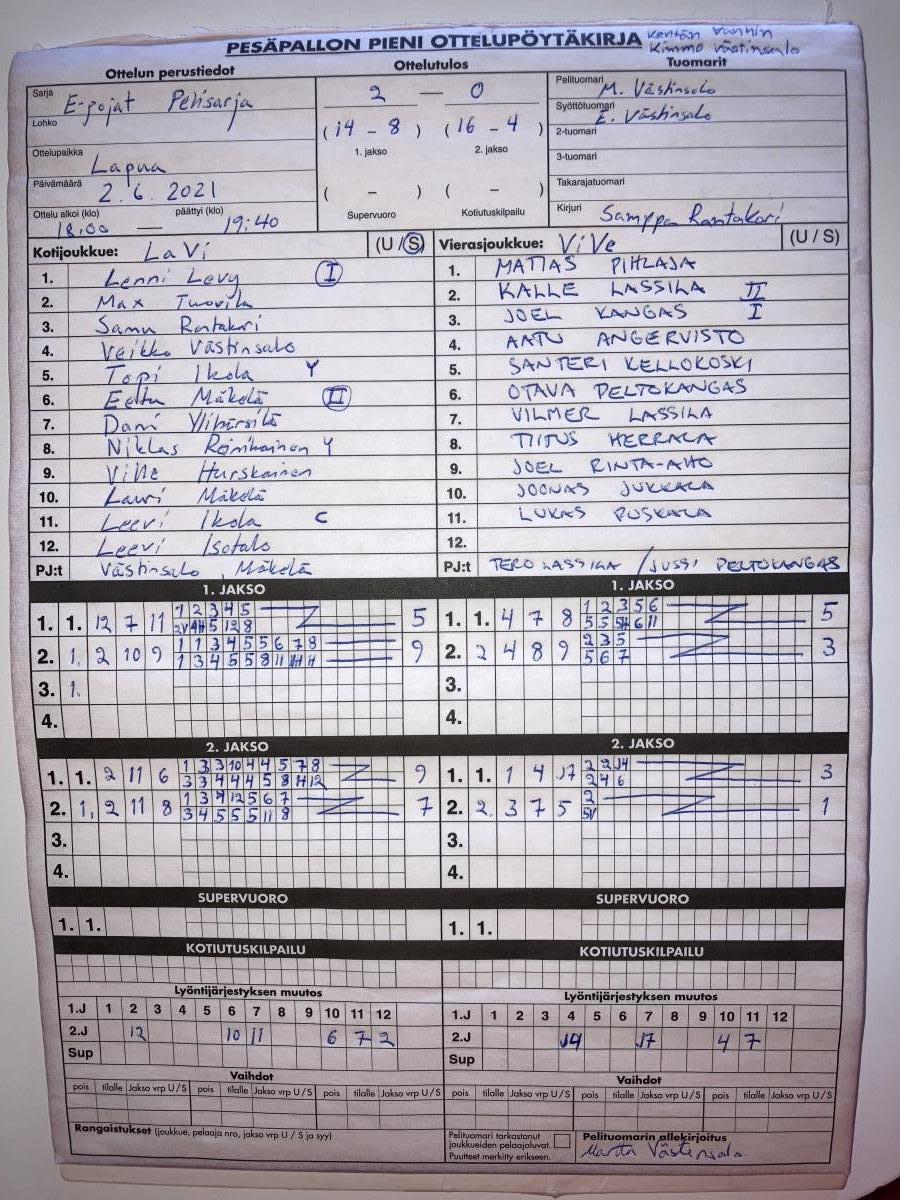 PESÄPALLON PIENI OTTELUPÖYTÄKIRJA kentän vanhin
Kimmo västinsalo
Ottelun perustiedot Ottelutulos Tuomarit
Sarja E-pojat Pelisarja
Lohko
Ottelupaikka Lapua
Päivämäärä 2.6.2021
Ottelu alkoi (klo) päättyi (klo)
18:00 — 19:40
2 — 0
( 14 - 8 ) ( 16 - 4 )
1. jakso 2. jakso
( - ) ( - )
Supervuoro Kotiutuskilpailu
Pelituomari M. Västinsalo
Syöttötuomari E. Västinsalo
2-tuomari
3-tuomari
Takarajatuomari
Kirjuri Samppa Rantakari
Kotijoukkue: LaVi (U / S)
1. Lenni Levy I
2. Max Tuovila
3. Samu Rantakari
4. Veikko Västinsalo
5. Topi Ikola Y
6. Eetu Mäkelä II
7. Dani
8. Niklas Y
9. Ville Hurskainen
10. Lauri Mäkelä
11. Leevi Ikola C
12. Leevi Isotalo
PJ:t Västinsalo, Mäkelä
Vierasjoukkue: ViVe (U / S)
1. MATIAS PIHLAJA
2. KALLE LASSILA II
3. JOEL KANGAS I
4. AATU ANGERVISTO
5. SANTERI KELLOKOSKI
6. OTAVA PELTOKANGAS
7. VILMER LASSILA
8. TIITUS HERRALA
9. JOEL RINTA-AHO
10. JOONAS JUKKALA
11. LUKAS PUSKALA
12.
PJ:t TERO LASSILA / JUSSI PELTOKANGAS
1. JAKSO
1. 1. 12 7 11 1 2 3 4 5 5
5 12 8
2. 1. 2 10 9 1 1 3 4 5 5 6 7 8 9
1 3 4 5 5 8 11
3. 1.
4.
1. JAKSO
1. 1. 4 7 8 1 2 3 5 6 5
5 5 6 11
2. 2 4 8 9 2 3 5 3
5 6 7
3.
4.
2. JAKSO
1. 1. 2 11 6 1 3 3 10 4 4 5 7 8 9
3 3 4 4 4 5 8 11 12
2. 1. 2 11 8 1 3 4 12 5 6 7 7
3 4 5 5 5 11 8
3.
4.
2. JAKSO
1. 1. 1 4 17 2 2 14 3
2 4 6
2. 2. 3 7 5 2 1
3.
4.
SUPERVUORO
1. 1.
SUPERVUORO
1. 1.
KOTIUTUSKILPAILU
KOTIUTUSKILPAILU
Lyöntijärjestyksen muutos
1.J 1 2 3 4 5 6 7 8 9 10 11 12
2.J 12 10 11 6 7 2
Sup
Lyöntijärjestyksen muutos
1.J 1 2 3 4 5 6 7 8 9 10 11 12
2.J 14 17 4 7
Sup
Vaihdot
pois tilalle Jakso vrp U/S pois tilalle Jakso vrp U/S pois tilalle Jakso vrp U/S
Vaihdot
pois tilalle Jakso vrp U/S pois tilalle Jakso vrp U/S pois tilalle Jakso vrp U/S
Rangaistukset (joukkue, pelaaja nro, jakso vrp U / S ja syy)
Pelituomari tarkastanut
joukkueiden pelaajaluvat.
Puutteet merkitty erikseen.
Pelituomarin allekirjoitus
Västinsalo